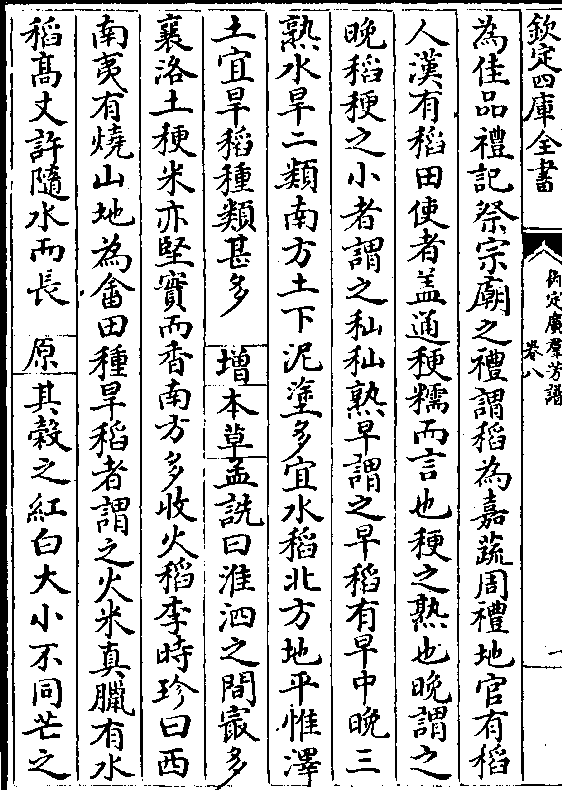 欽定四庫全書
御定廣羣芳譜
卷八
為佳品禮記祭宗廟之禮謂稻為嘉蔬周禮地官有稻
人漢有稻田使者盖通稉糯而言也稉之熟也晚謂之
晚稻稉之小者謂之秈秈熟早謂之早稻有早中晚三
熟水旱二類南方土下泥塗多宜水稻北方地平惟澤
土宜旱稻種類甚多 增本草孟詵曰淮泗之間㝡多
襄洛土稉米亦堅實而香南方多收火稻李時珍曰西
南夷有燒山地為畬田種旱稻者謂之火米真臘有水
稻髙丈許隨水而長 原其榖之紅白大小不同芒之